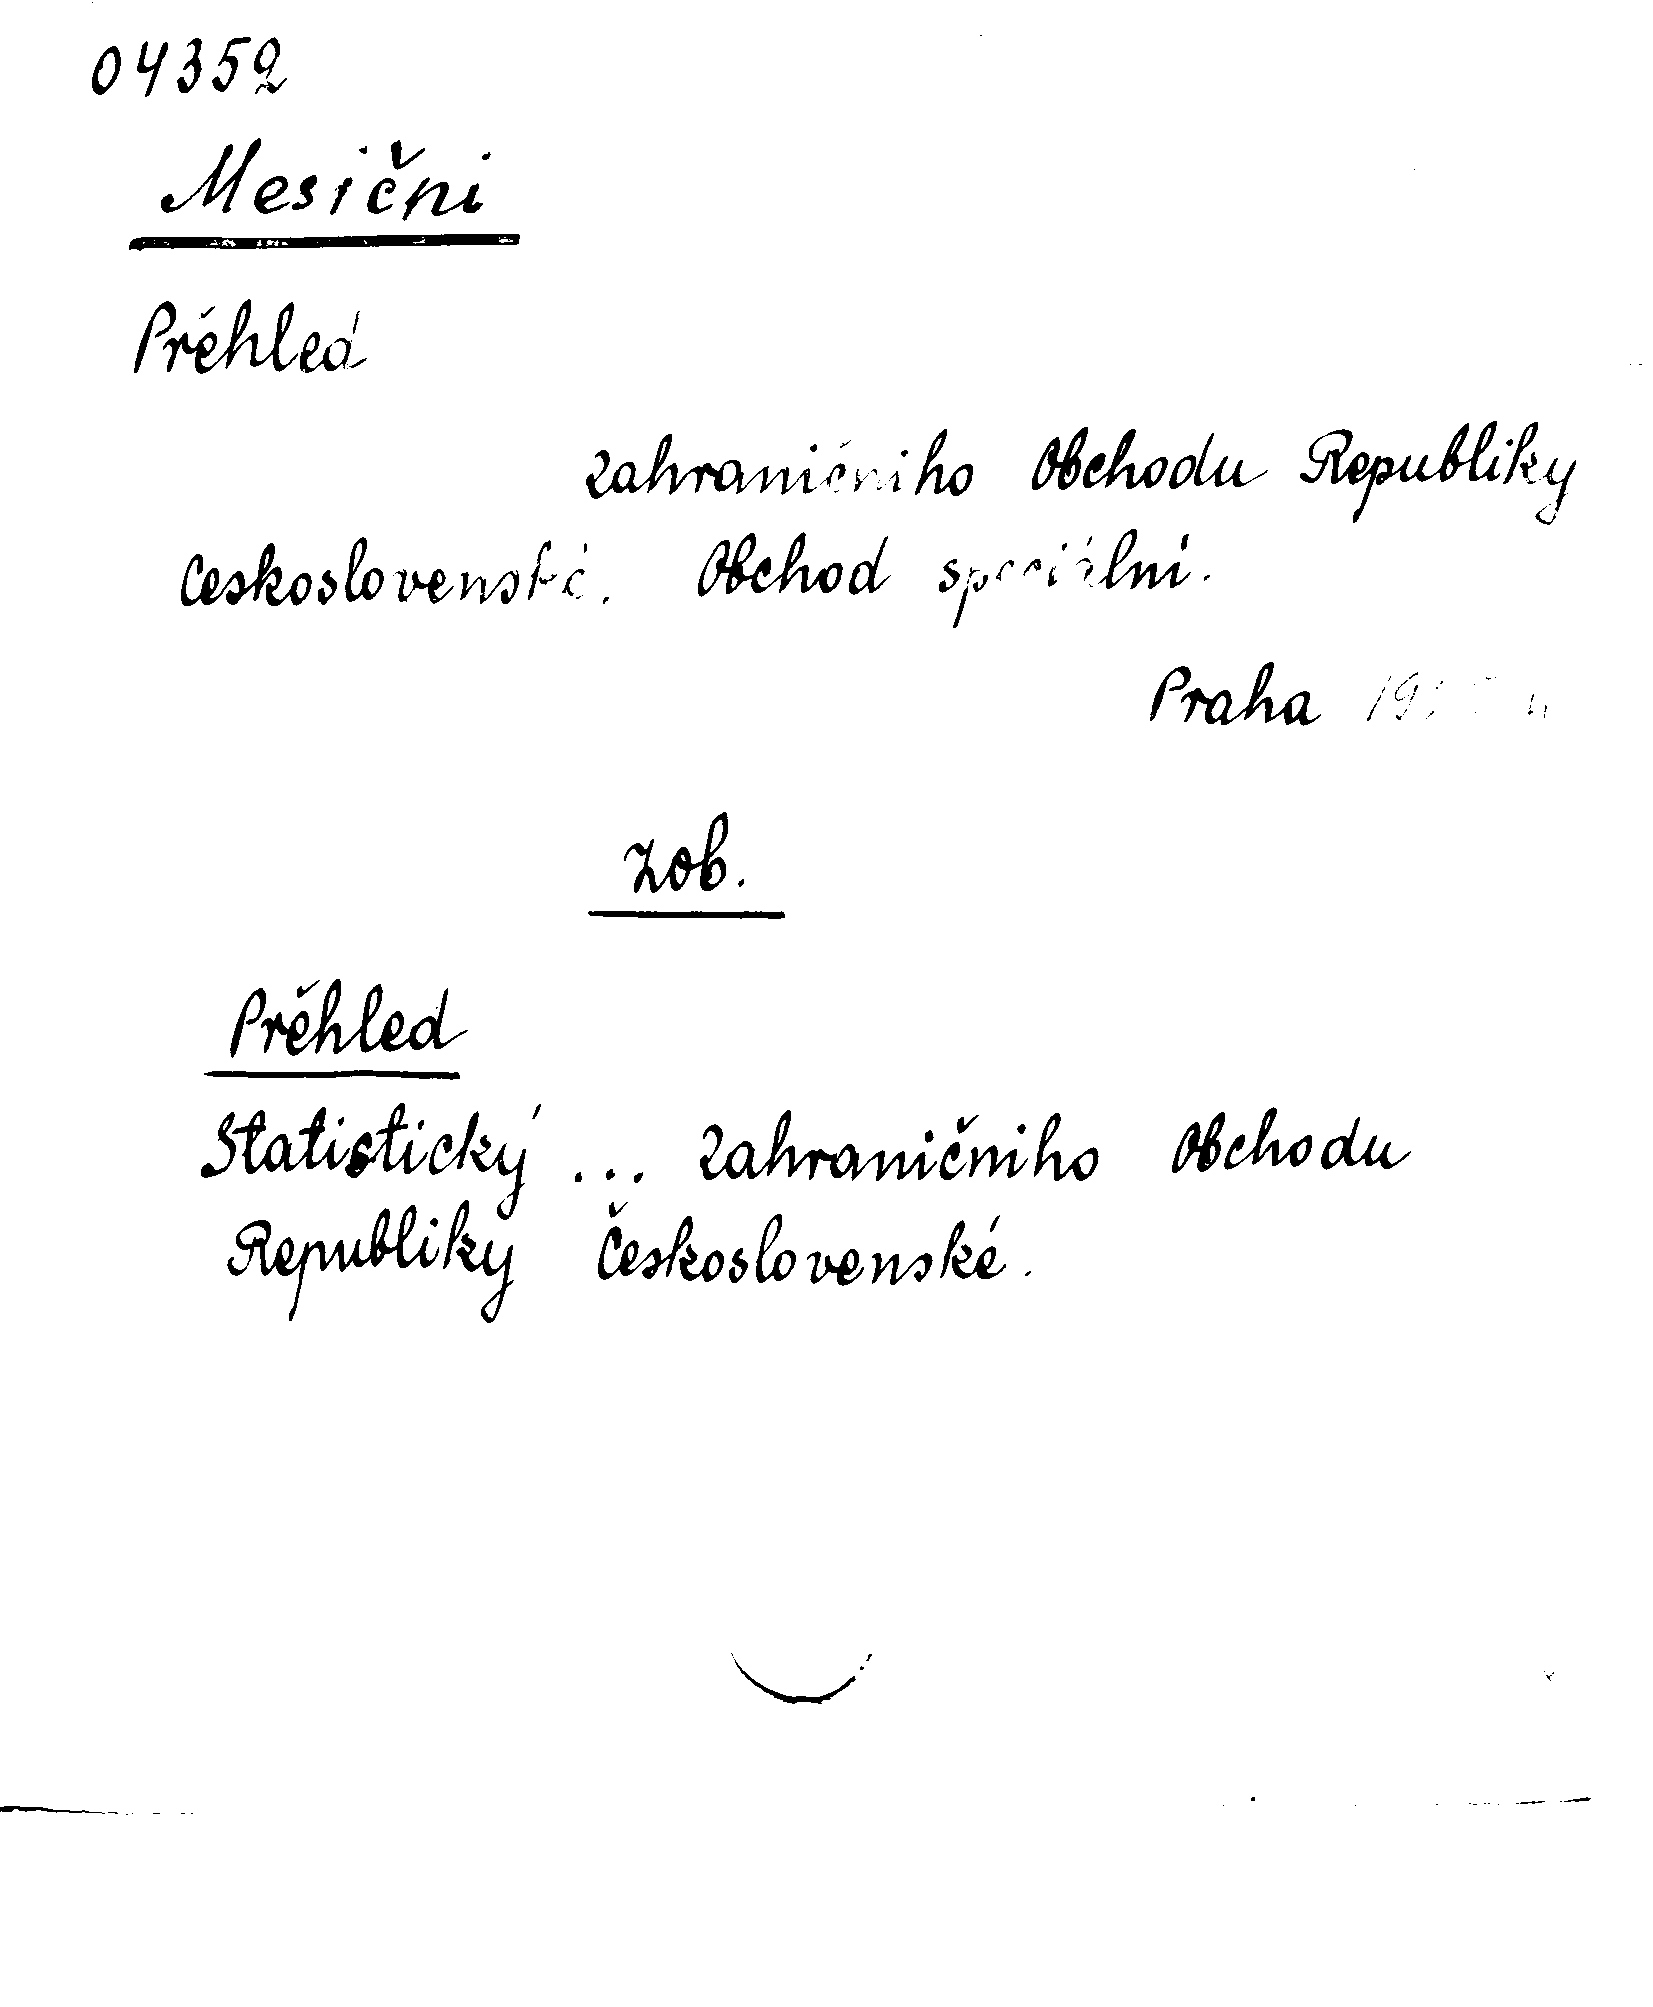 04352
Mesični
Prěhled
Zahraničniho Obchodu Republiky
Československé. Obchod speciálni.
Praha
Zob.
Prěhled
Statistický ... Zahraničniho Obchodu
Republiky Československé.